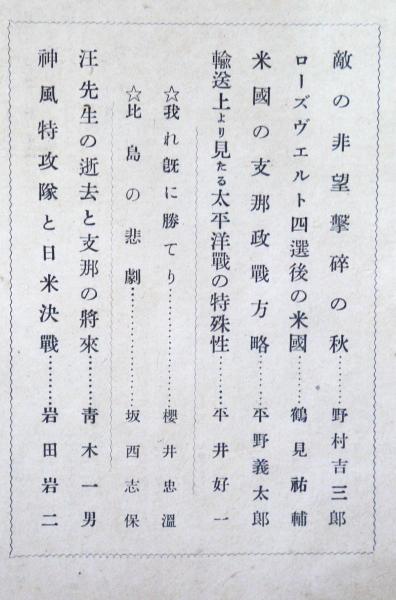 敵の非望擊碎の秋………野村吉三郎
ローズヴェルト四選後の米國………鶴見祐輔
米國の支那政戰方略………平野義太郎
輸送上より見たる太平洋戰の特殊性………平井好一
☆我れ旣に勝てり………………櫻井忠溫
☆比島の悲劇………………坂西志保
汪先生の逝去と支那の將來………靑木一男
神風特攻隊と日米決戰………岩田岩二